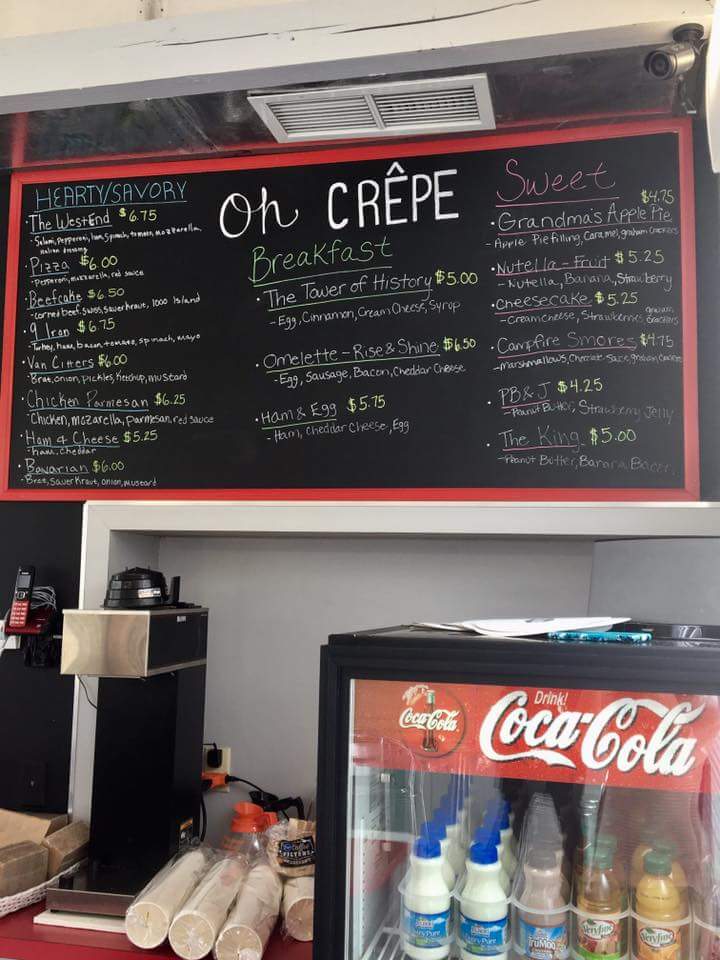 Oh CRÊPE
HEARTY/SAVORY
· The WestEnd $6.75
- Salami, Pepperoni, ham, Spinach, tomato, mozzarella,
italian dressing
· Pizza $6.00
- Pepperoni, mozzarella, red sauce
· Beefcake $6.50
- corned beef, swiss, sauerkraut, 1000 Island
· 9 Iron $6.75
- Turkey, ham, bacon, tomato, spinach, mayo
· Van Citters $6.00
- Brat, onion, pickles, ketchup, mustard
· Chicken Parmesan $6.25
- Chicken, mozarella, parmesan, red sauce
· Ham & Cheese $5.25
- ham, cheddar
· Bavarian $6.00
- Brat, Sauer Kraut, onion, mustard
Breakfast
· The Tower of History $5.00
- Egg, Cinnamon, Cream Cheese, Syrup
· Omelette - Rise & Shine $6.50
- Egg, Sausage, Bacon, Cheddar Cheese
· Ham & Egg $5.75
- Ham, Cheddar Cheese, Egg
Sweet
$4.75
· Grandma's Apple Pie
- Apple Pie filling, Caramel, graham Crackers
· Nutella - Fruit $5.25
- Nutella, Banana, Strawberry
· Cheesecake $5.25
- Creamcheese, Strawberries, graham
crackers
· Campfire Smores $4.75
- marshmallows, Chocolate Sauce, graham Crackers
· PB & J $4.25
- Peanut Butter, Strawberry Jelly
· The King $5.00
- Peanut Butter, Banana, Bacon
BUNN
Coca-Cola
Drink!
Coca-Cola
FILTERS
DairyPure
DairyPure
TruMoo
Veryfine
Veryfine